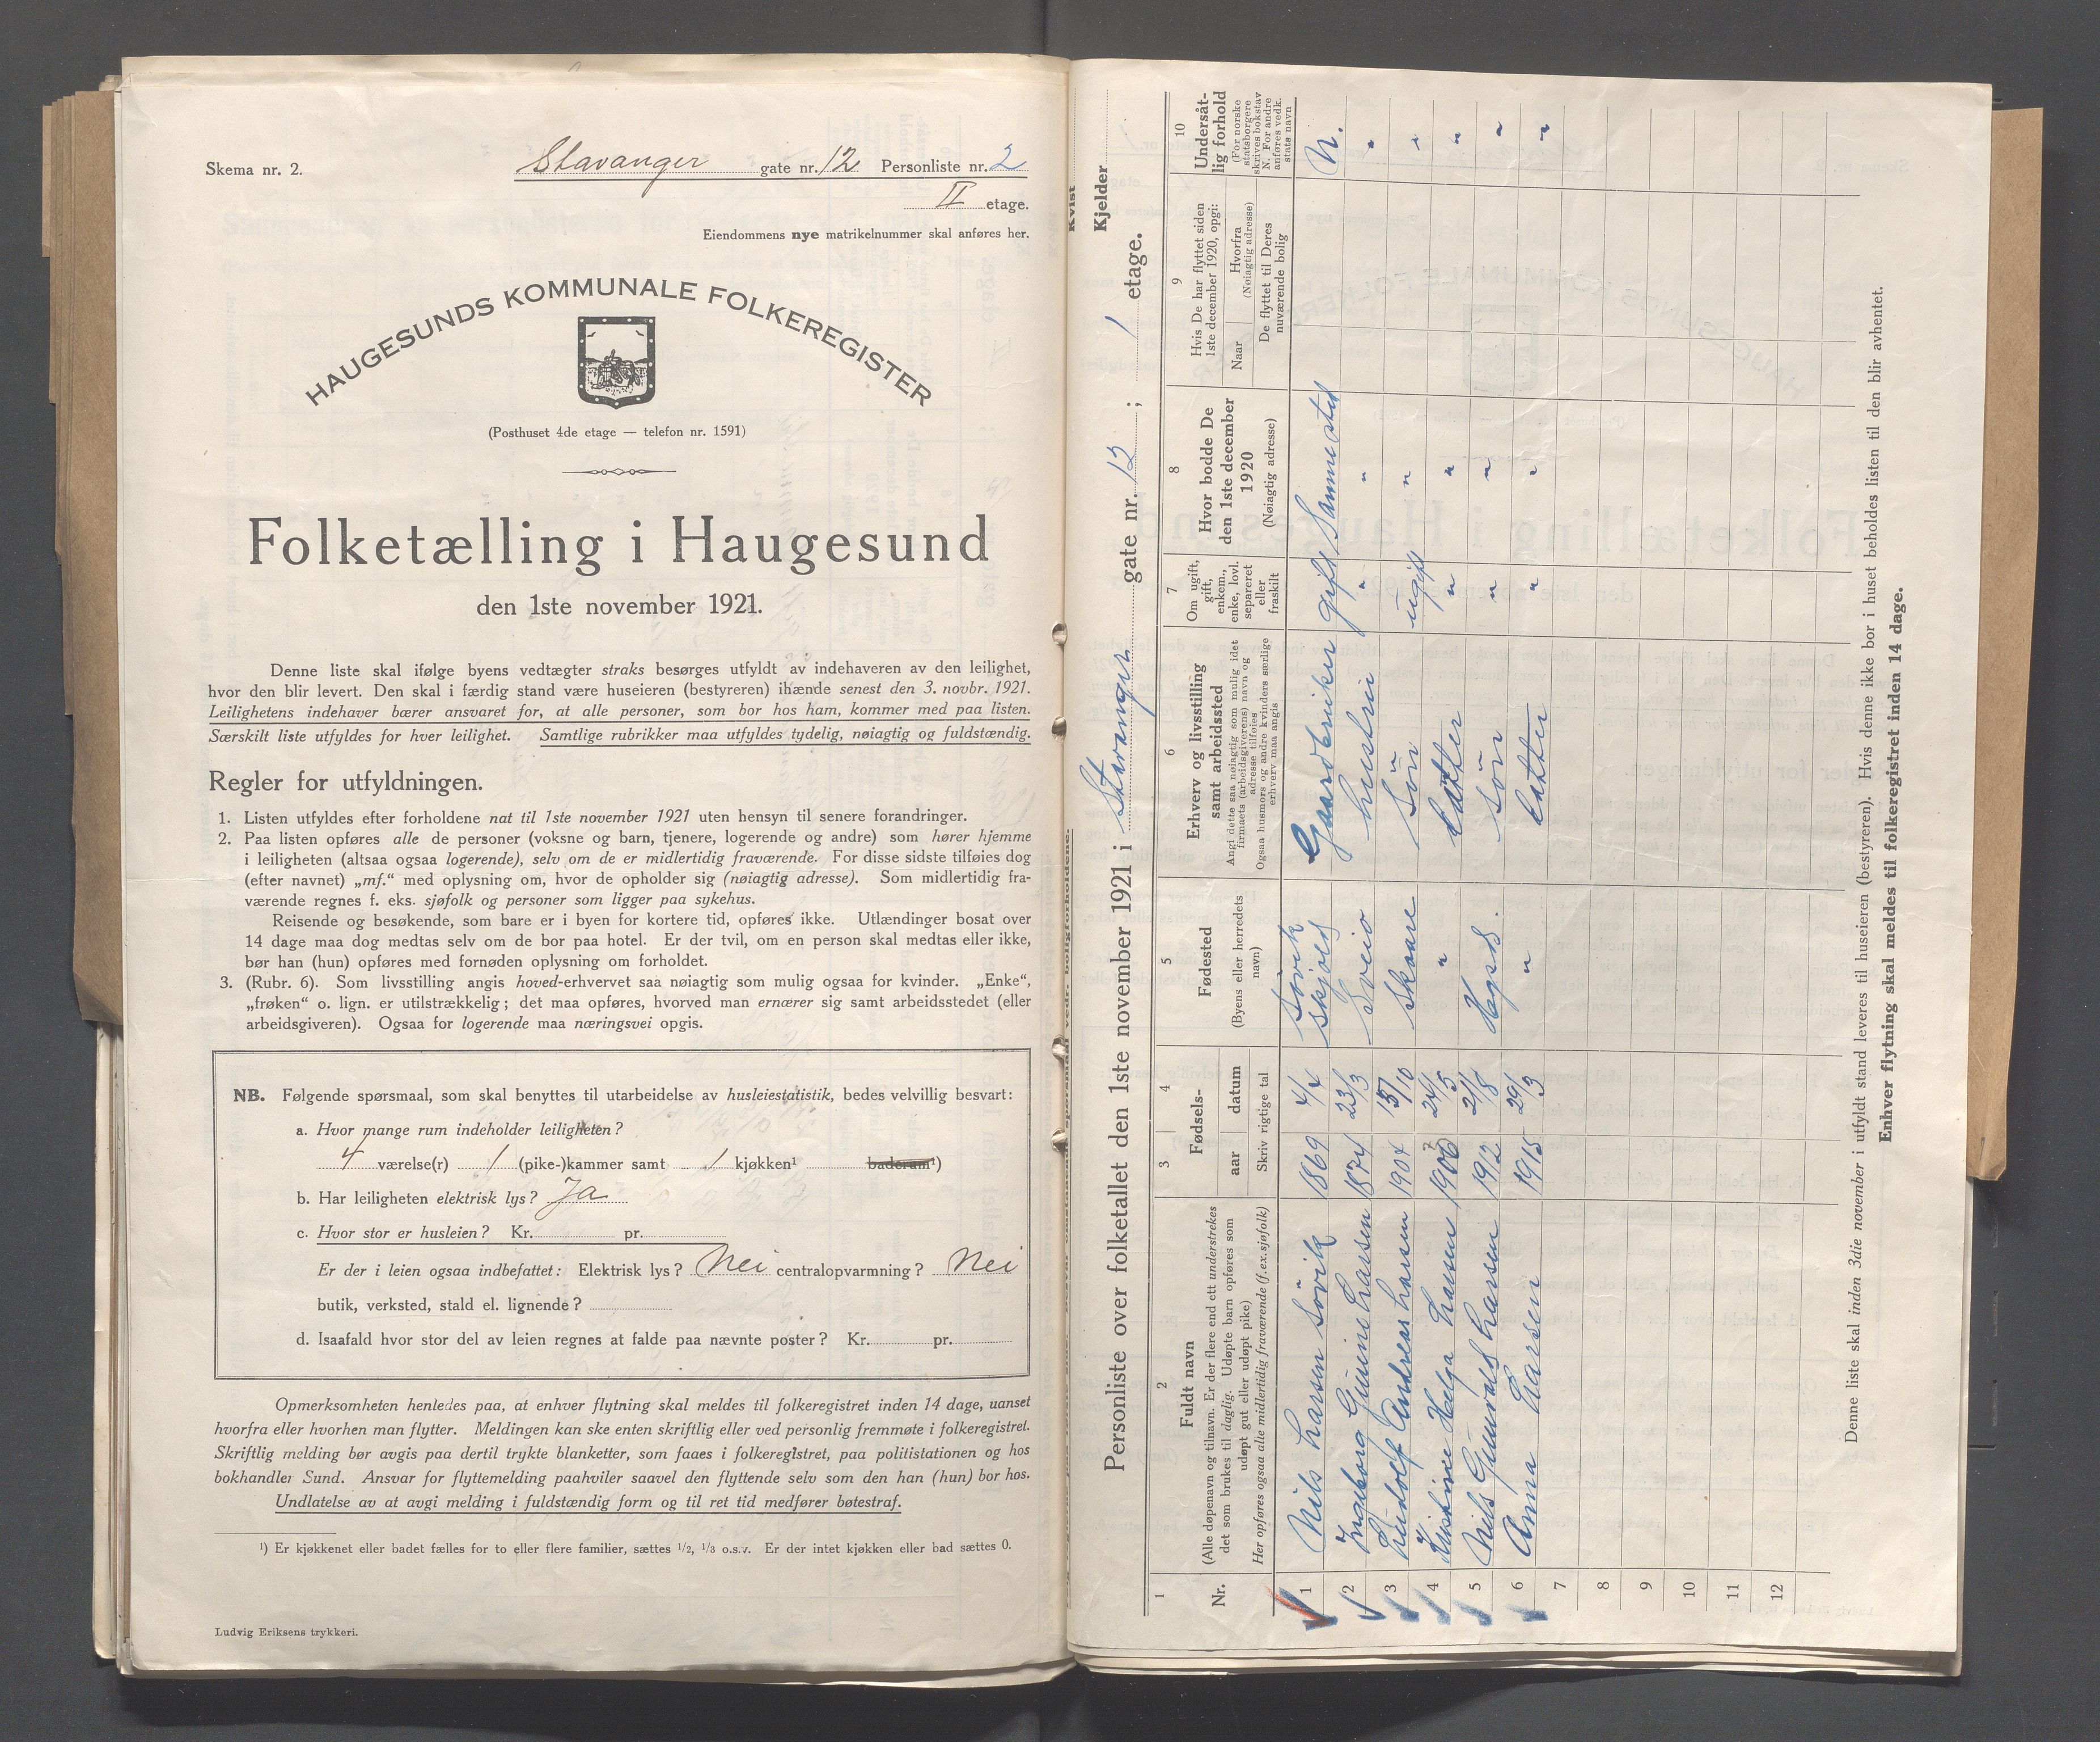 Skema nr. 2.
Stavanger gate nr. 12 Personliste nr. 2
II etage.
Eiendommens nye matrikelnummer skal anføres her.
HAUGESUNDS KOMMUNALE FOLKEREGISTER
(Posthuset 4de etage — telefon nr. 1591)
Folketælling i Haugesund
den 1ste november 1921.
Denne liste skal ifølge byens vedtægter straks besørges utfyldt av indehaveren av den leilighet,
hvor den blir levert. Den skal i færdig stand være huseieren (bestyreren) ihænde senest den 3. novbr. 1921.
Leilighetens indehaver bærer ansvaret for, at alle personer, som bor hos ham, kommer med paa listen.
Særskilt liste utfyldes for hver leilighet. Samtlige rubrikker maa utfyldes tydelig, nøiagtig og fuldstændig.
Regler for utfyldningen.
1. Listen utfyldes efter forholdene nat til 1ste november 1921 uten hensyn til senere forandringer.
2. Paa listen opføres alle de personer (voksne og barn, tjenere, logerende og andre) som hører hjemme
i leiligheten (altsaa ogsaa logerende), selv om de er midlertidig fraværende. For disse sidste tilføies dog
(efter navnet) „mf.“ med oplysning om, hvor de opholder sig (nøiagtig adresse). Som midlertidig fra-
værende regnes f. eks. sjøfolk og personer som ligger paa sykehus.
Reisende og besøkende, som bare er i byen for kortere tid, opføres ikke. Utlændinger bosat over
14 dage maa dog medtas selv om de bor paa hotel. Er der tvil, om en person skal medtas eller ikke,
bør han (hun) opføres med fornøden oplysning om forholdet.
3. (Rubr. 6). Som livsstilling angis hoved-erhvervet saa nøiagtig som mulig ogsaa for kvinder. „Enke“,
„frøken“ o. lign. er utilstrækkelig; det maa opføres, hvorved man ernærer sig samt arbeidsstedet (eller
arbeidsgiveren). Ogsaa for logerende maa næringsvei opgis.
NB. Følgende spørsmaal, som skal benyttes til utarbeidelse av husleiestatistik, bedes velvillig besvart:
a. Hvor mange rum indeholder leiligheten?
4 værelse(r) 1 (pike-)kammer samt 1 kjøkken¹ baderum¹)
b. Har leiligheten elektrisk lys? Ja
c. Hvor stor er husleien? Kr. pr.
Er der i leien ogsaa indbefattet: Elektrisk lys? Nei centralopvarmning? Nei
butik, verksted, stald el. lignende?
d. Isaafald hvor stor del av leien regnes at falde paa nævnte poster? Kr. pr.
Opmerksomheten henledes paa, at enhver flytning skal meldes til folkeregistret inden 14 dage, uanset
hvorfra eller hvorhen man flytter. Meldingen kan ske enten skriftlig eller ved personlig fremmøte i folkeregistret.
Skriftlig melding bør avgis paa dertil trykte blanketter, som faaes i folkeregistret, paa politistationen og hos
bokhandler Sund. Ansvar for flyttemelding paahviler saavel den flyttende selv som den han (hun) bor hos.
Undlatelse av at avgi melding i fuldstændig form og til ret tid medfører bøtestraf.
¹) Er kjøkkenet eller badet fælles for to eller flere familier, sættes 1/2, 1/3 o.s.v. Er der intet kjøkken eller bad sættes 0.
Ludvig Eriksens trykkeri.
Kvist
Kjelder
Personliste over folketallet den 1ste november 1921 i Stavanger gate nr. 12 ; 1 etage.
1 2 3 4 5 6 7 8 9 10
Nr.
Fuldt navn
(Alle døpenavn og tilnavn. Er der flere end ett understrekes
det som brukes til daglig. Udøpte barn opføres som
udøpt gut eller udøpt pike)
Her opføres ogsaa alle midlertidig fraværende (f.ex. sjøfolk)
Fødsels-
aar datum
Skriv rigtige tal
Fødested
(Byens eller herredets
navn)
Erhverv og livsstilling
samt arbeidssted
Angi dette saa nøiagtig som mulig idet
firmaets (arbeidsgiverens) navn og
adresse tilføies
Ogsaa husmors og andre kvinders særlige
erhverv maa angis
Om ugift,
gift,
enkem.,
enke, lovl.
separeret
eller
fraskilt
Hvor bodde De
den 1ste december
1920
(Nøiagtig adresse)
Hvis De har flyttet siden
1ste december 1920, opgi:
Naar
Hvorfra
(Nøiagtig adresse)
De flyttet til Deres
nuværende bolig
Undersåt-
lig forhold
(For norske
statsborgere
skrives bokstav
N. For andre
anføres vedk.
stats navn
1 Nils Larsen Sövik 1869 4/4 Sövik Skjold Gaardbruker gift Samme sted N.
2 Ingeborg Gurine Larsen 1874 23/3 Sveio hustru " " "
3 Rudolf Andreas Larsen 1904 /10 Skaare Sön ugift " "
4 Kristine Helga Larsen 1907 24/5 " datter " " "
5 Nils Gunvald Larsen 1912 21/8 Hgsd. sön " " "
6 Anna Larsen 1915 29/3 " datter " " "
7
8
9
10
11
12
Denne liste skal inden 3die november i utfyldt stand leveres til huseieren (bestyreren). Hvis denne ikke bor i huset beholdes listen til den blir avhentet.
Enhver flytning skal meldes til folkeregistret inden 14 dage.